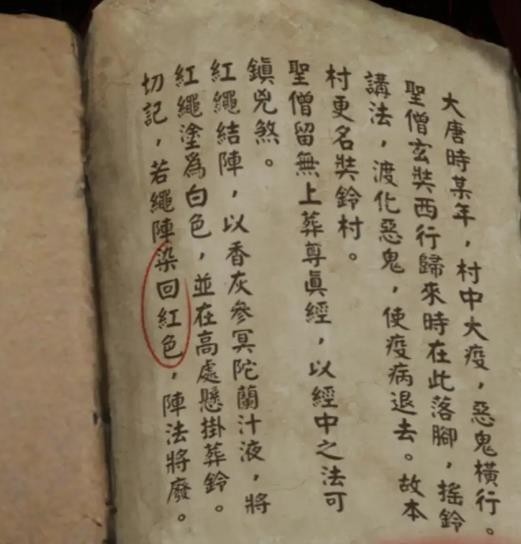 大唐時某年，村中大疫，惡鬼橫行。
聖僧玄奘西行歸來時在此落腳，搖鈴
講法，渡化惡鬼，使疫病退去。故本
村更名奘鈴村。
聖僧留無上葬尊真經，以經中之法可
鎮兇煞。
紅繩結陣，以香灰參冥陀蘭汁液，將
紅繩塗為白色，並在高處懸掛葬鈴。
切記，若繩陣染回紅色，陣法將廢。